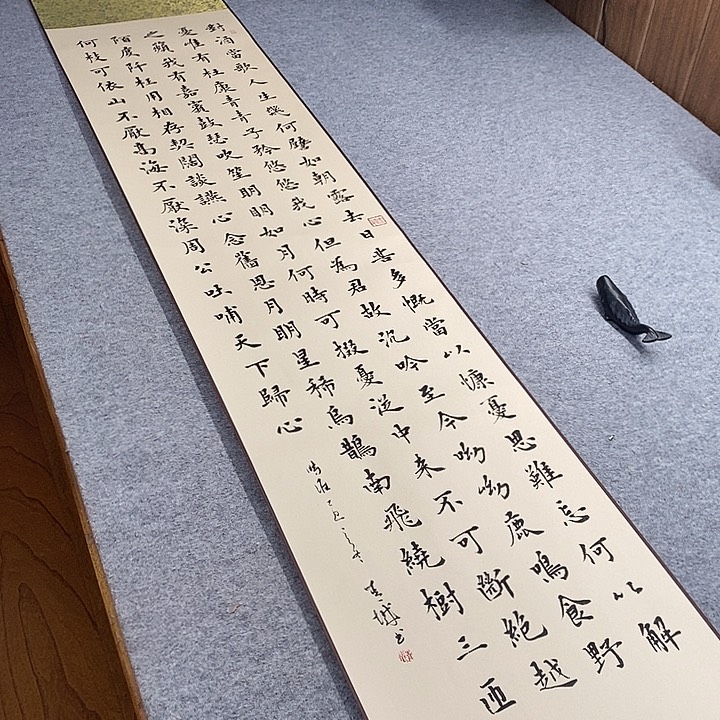 對酒當歌人生幾何譬如朝露去日苦多慨當以慷憂思難忘何以解
憂惟有杜康青青子衿悠悠我心但為君故沉吟至今呦呦鹿鳴食野
之蘋我有嘉賓鼓瑟吹笙明明如月何時可掇憂從中来不可斷絕越
陌度阡枉用相存契闊談讌心念舊恩月明星稀烏鵲南飛繞樹三匝
何枝可依山不厭高海不厭深周公吐哺天下歸心